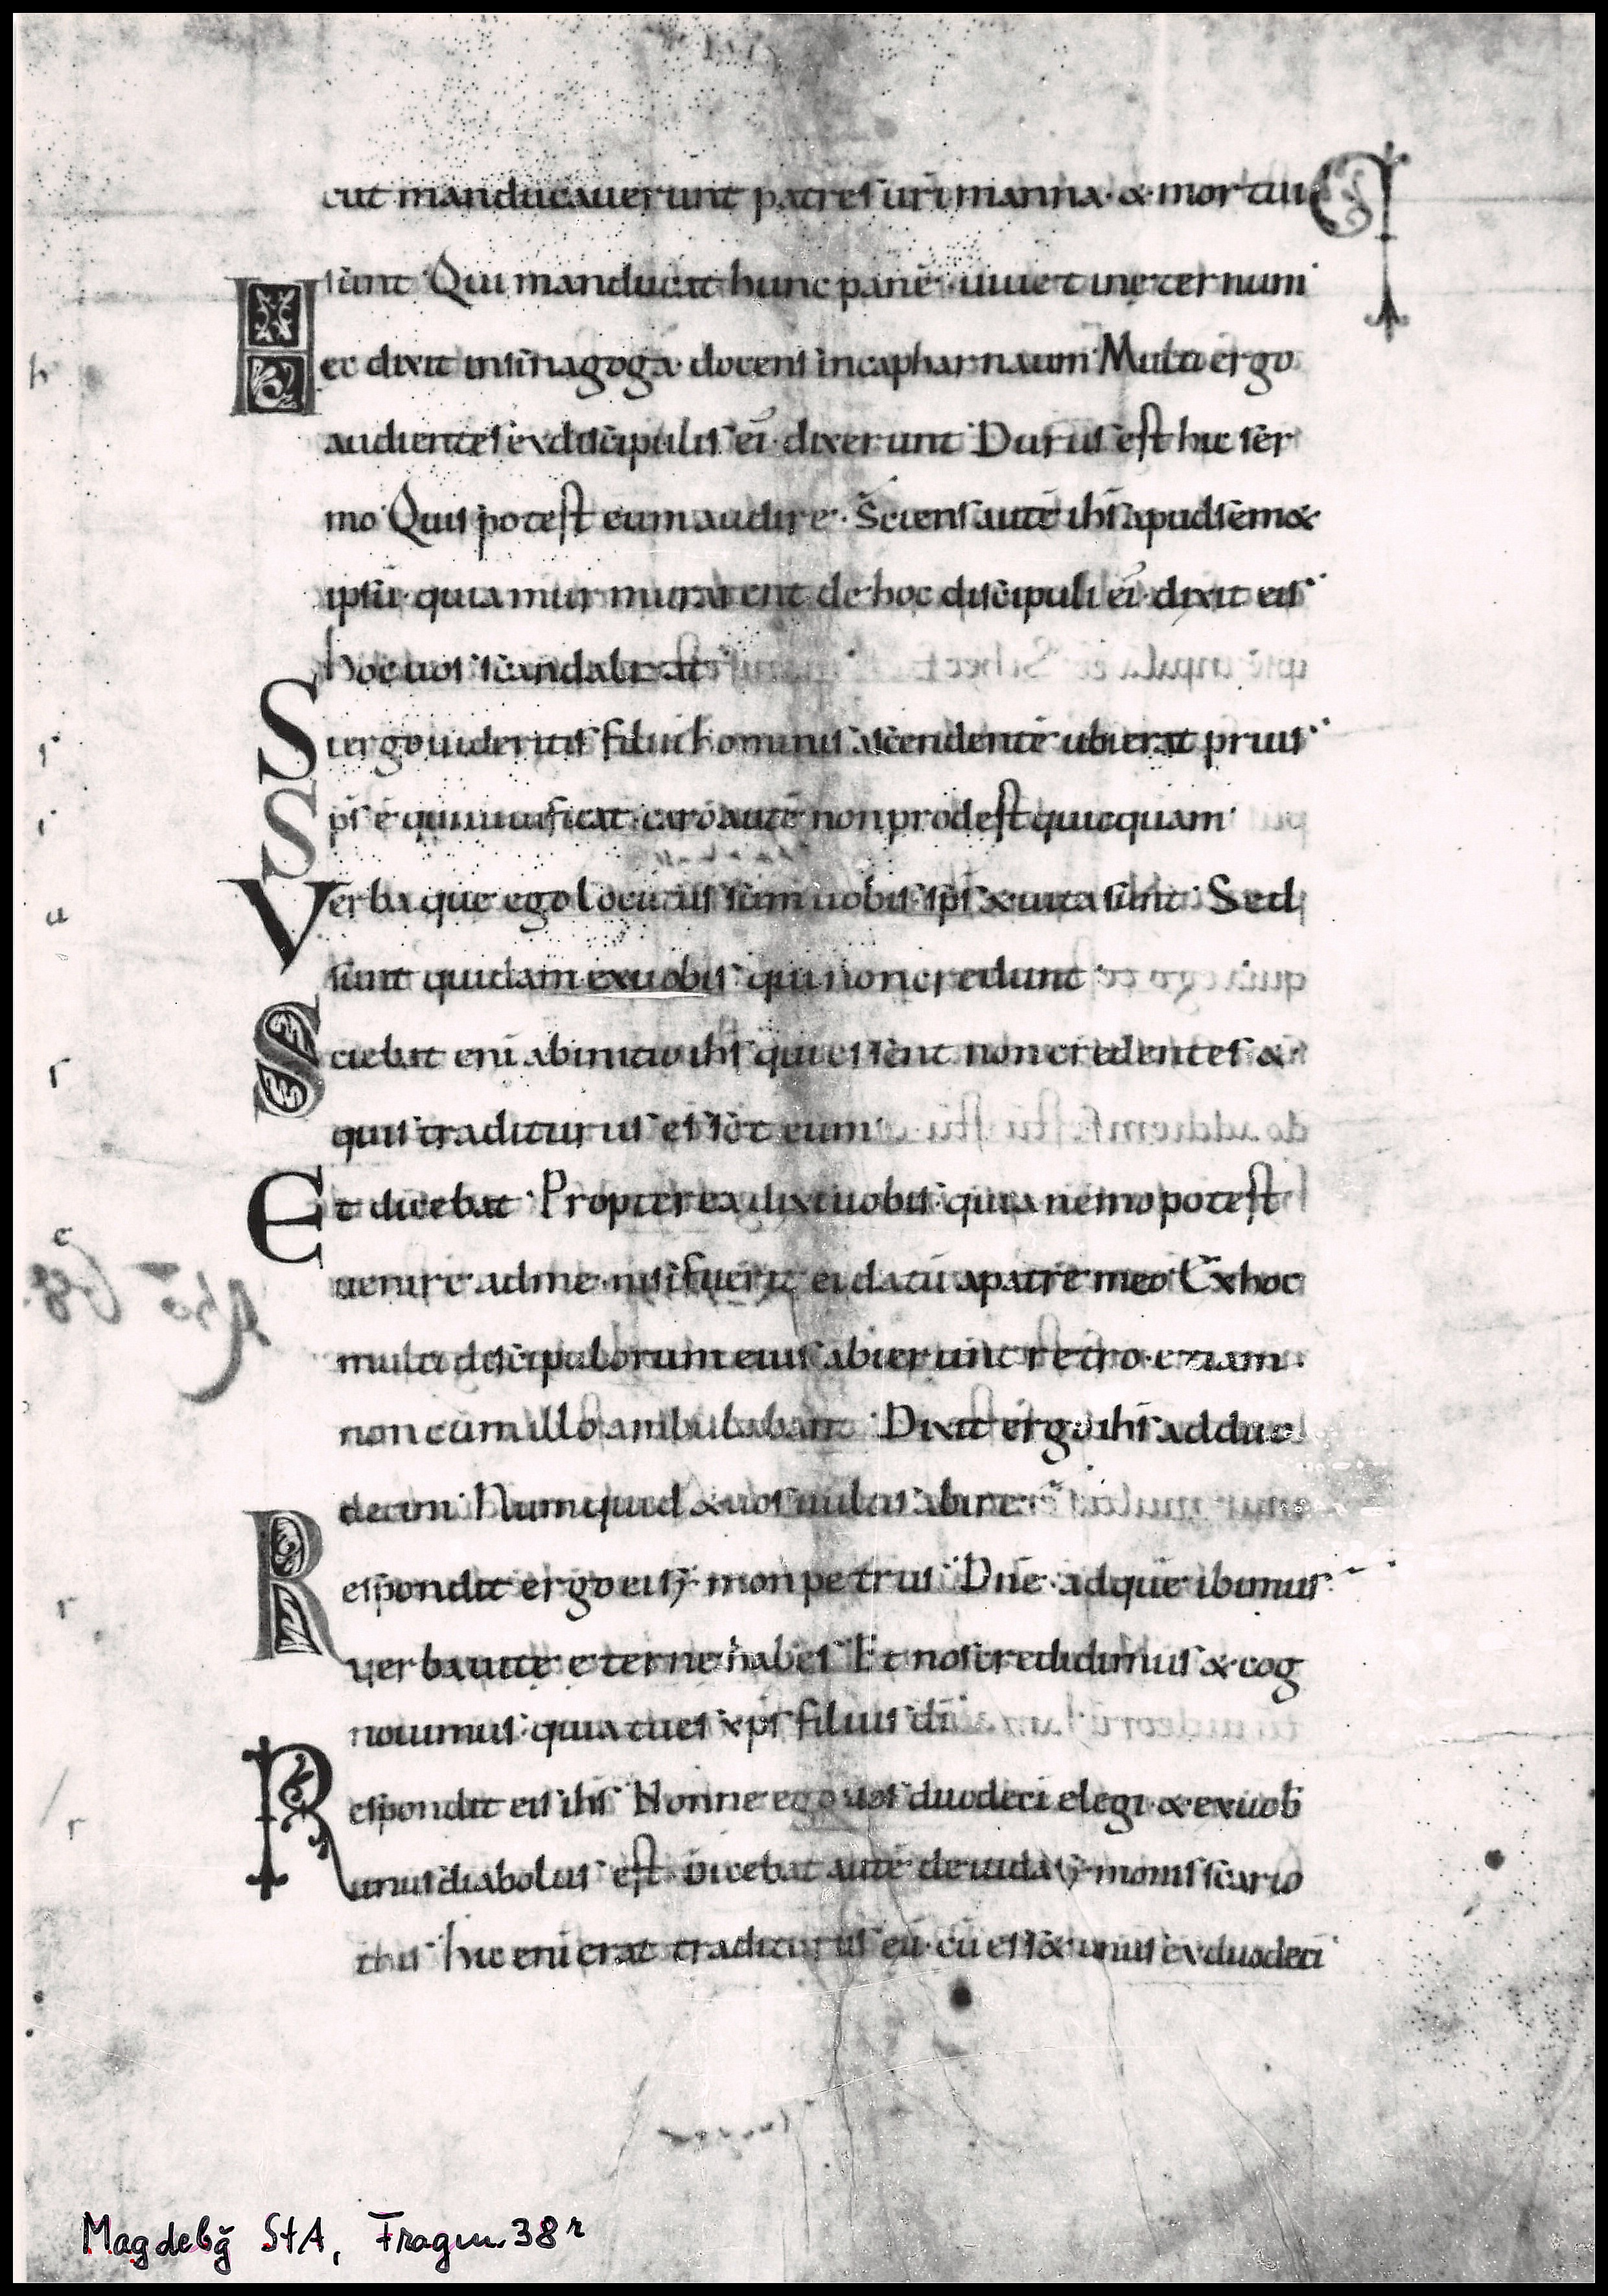 cut manducauerunt patres uri manna· & mortui
sunt· Qui manducat hunc panē· uiuet in eternum·
Hec dixit in sinagoga· docens in capharnaum· Multi ergo
audientes ex discipulis ei᾽· dixerunt· Durus est hic ser
mo· Quis potest eum audire· Sciens autē ihs apud sem&
ipsū· quia murmurarent de hoc discipuli ei᾽· dixit eis·
hoc uos scandalizat
Si ergo uideritis filiū hominis ascendentē ubi erat prius·
Sps ē qui uiuificat· caro autē non prodest quicquam·
Verba que ego locutus sum uobis· sps & uita sunt· Sed
sunt quidam ex uobis· qui non credunt·
Sciebat enī ab initio ihs qui essent non credentes &
quis traditurus esset eum
Et dicebat· Propterea dixi uobis· quia nemo potest
uenire ad me· nisi fuerit ei datū a patre meo· Ex hoc
multi discipulorum eius abierunt retro· & iam
non cum illo ambulabant· Dixit ergo ihs ad duo
decim· Numquid & uos uultis abire
Respondit ergo ei symon petrus· Dne· ad quē ibimus·
uerba uite eterne habes· Et nos credidimus & cog
nouimus· quia tu es xps filius dī
Respondit eis ihs· Nonne ego uos duodeci elegi· & ex uob
unus diabolus est· Dicebat autē de iuda symonis scario
this· hic enī erat traditurus eū· cū ess& unus ex duodecī·
Magdebg̃ StA, Fragm. 38r